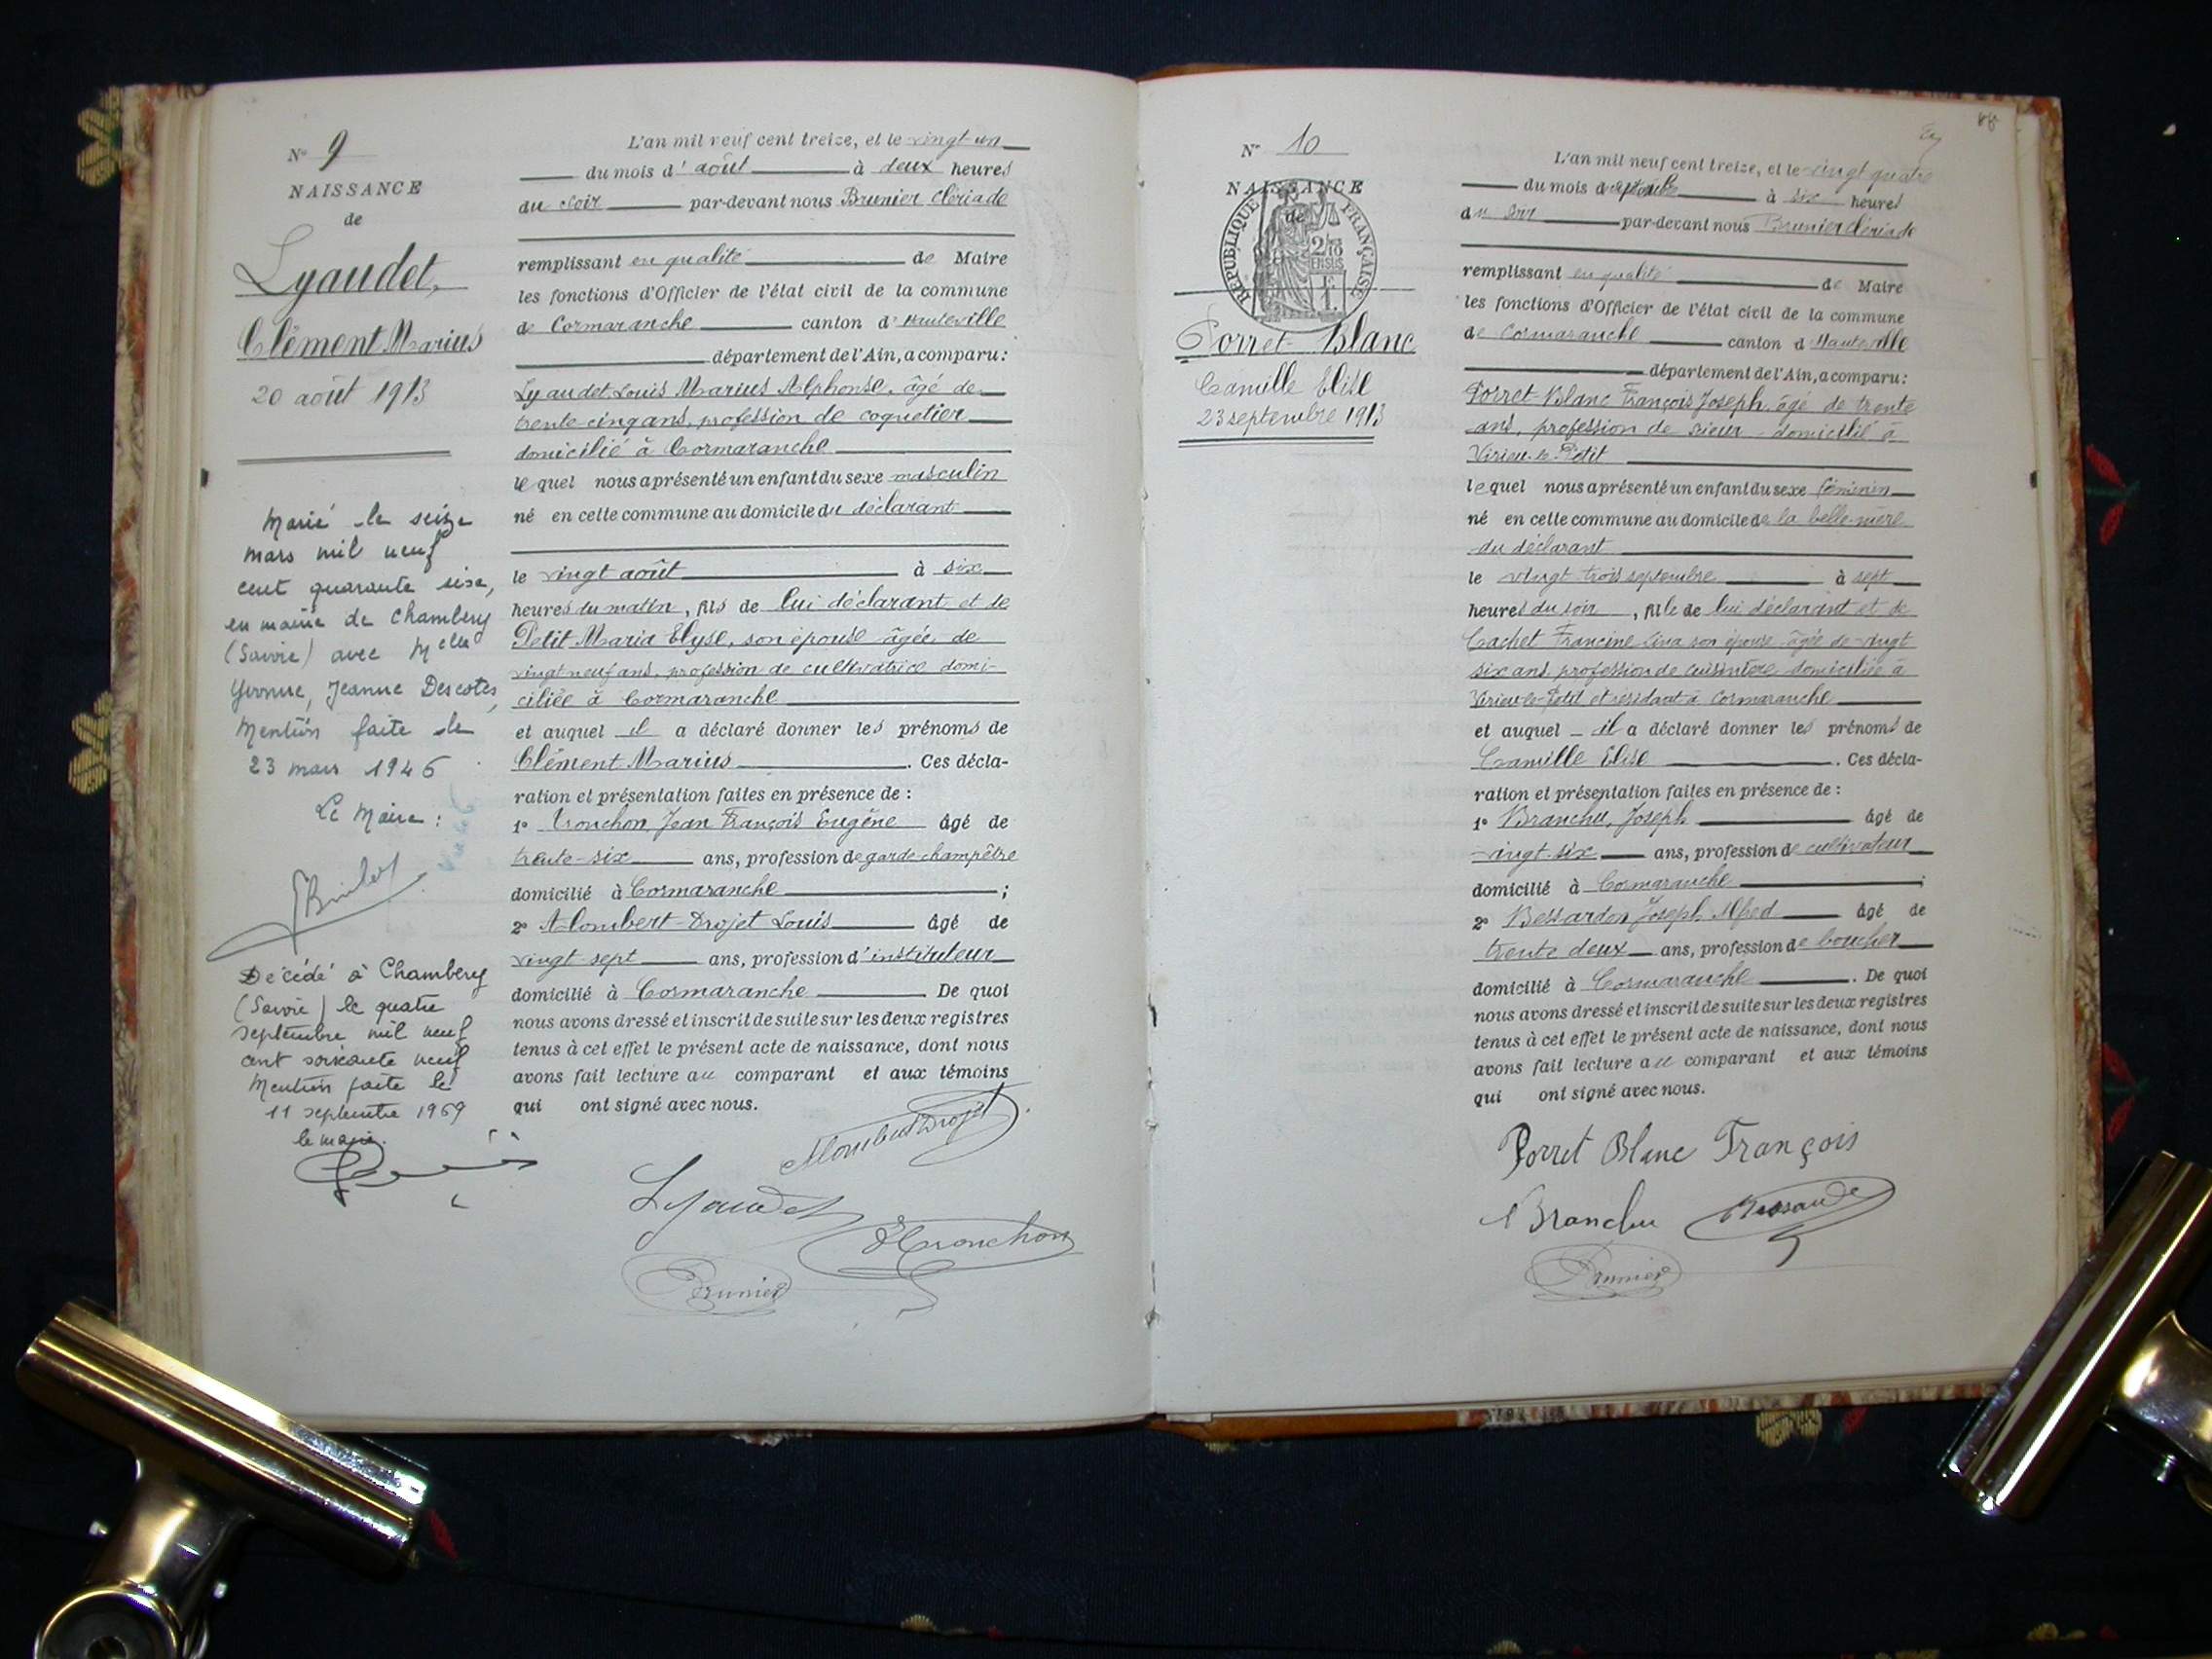 N° 9
NAISSANCE
de
Lyaudet,
Clément Marius
20 août 1913
Marié le seize
mars mil neuf
cent quarante six,
en mairie de Chambéry
(Savoie) avec Melle
Yvonne, Jeanne Descotes,
Mention faite le
23 mars 1946
Le Maire :
Décédé à Chambéry
(Savoie) le quatre
septembre mil neuf
cent soixante neuf
Mention faite le
11 septembre 1969
le maire.
L'an mil neuf cent treize, et le vingt-un
du mois d'août à deux heures
du soir par-devant nous Brunier Clériade
remplissant en qualité de Maire
les fonctions d'Officier de l'état civil de la commune
de Cormaranche canton d'Hauteville
département de l'Ain, a comparu :
Lyaudet Louis Marius Alphonse, âgé de
trente-cinq ans, profession de coquetier
domicilié à Cormaranche
lequel nous a présenté un enfant du sexe masculin
né en cette commune au domicile du déclarant
le vingt août à six
heures du matin, fils de lui déclarant et de
Petit Maria Elyse, son épouse âgée de
vingt neuf ans, profession de cultivatrice domi-
ciliée à Cormaranche
et auquel il a déclaré donner les prénoms de
Clément Marius. Ces décla-
ration et présentation faites en présence de :
1° Tronchon, Jean François Eugène âgé de
trente-six ans, profession de garde champêtre
domicilié à Cormaranche ;
2° Alombert-Drojet Louis âgé de
vingt sept ans, profession d'instituteur
domicilié à Cormaranche De quoi
nous avons dressé et inscrit de suite sur les deux registres
tenus à cet effet le présent acte de naissance, dont nous
avons fait lecture au comparant et aux témoins
qui ont signé avec nous.
Alombert Drojet
Lyaudet
Tronchon
Brunier
N° 10
NAISSANCE
de
RÉPUBLIQUE FRANÇAISE
2/10
EN SUS
1 F
Porret-Blanc
Camille Elise
23 septembre 1913
L'an mil neuf cent treize, et le vingt quatre
du mois de septembre à six heures
du soir par-devant nous Brunier Clériade
remplissant en qualité de Maire
les fonctions d'Officier de l'état civil de la commune
de Cormaranche canton d'Hauteville
département de l'Ain, a comparu :
Porret-Blanc François Joseph, âgé de trente
ans, profession de scieur domicilié à
Virieu-le-Petit
lequel nous a présenté un enfant du sexe féminin
né en cette commune au domicile de la belle-mère
du déclarant
le vingt trois septembre à sept
heures du soir, fille de lui déclarant et de
Cachet Francine Lina son épouse âgée de vingt
six ans profession de cuisinière domiciliée à
Virieu-le-Petit et résidant à Cormaranche
et auquel il a déclaré donner les prénoms de
Camille Elise. Ces décla-
ration et présentation faites en présence de :
1° Branche, Joseph âgé de
vingt-six ans, profession de cultivateur
domicilié à Cormaranche ;
2° Bessardon Joseph Alfred âgé de
trente deux ans, profession de boucher
domicilié à Cormaranche. De quoi
nous avons dressé et inscrit de suite sur les deux registres
tenus à cet effet le présent acte de naissance, dont nous
avons fait lecture au comparant et aux témoins
qui ont signé avec nous.
Porret Blanc François
Branche
Brunier